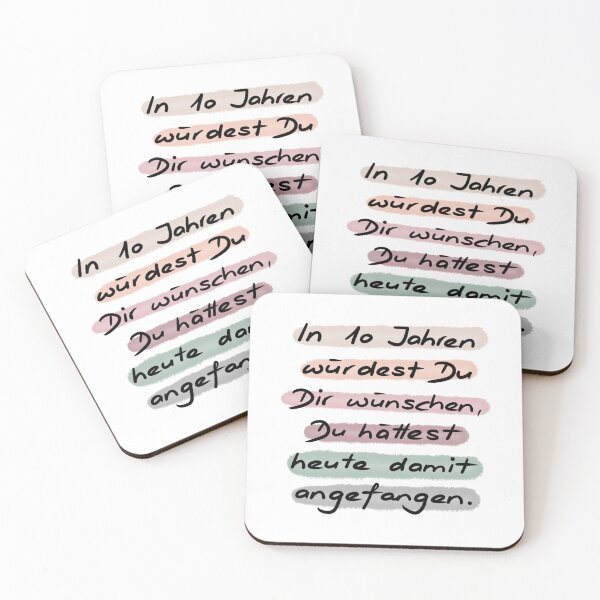 In 10 Jahren
würdest Du
Dir wünschen,
In 10 Jahren
würdest Du
Dir wünschen,
Du hättest
heute damit
In 10 Jahren
würdest Du
Dir wünschen,
Du hättest
heute
angefangen
In 10 Jahren
würdest Du
Dir wünschen,
Du hättest
heute damit
angefangen.